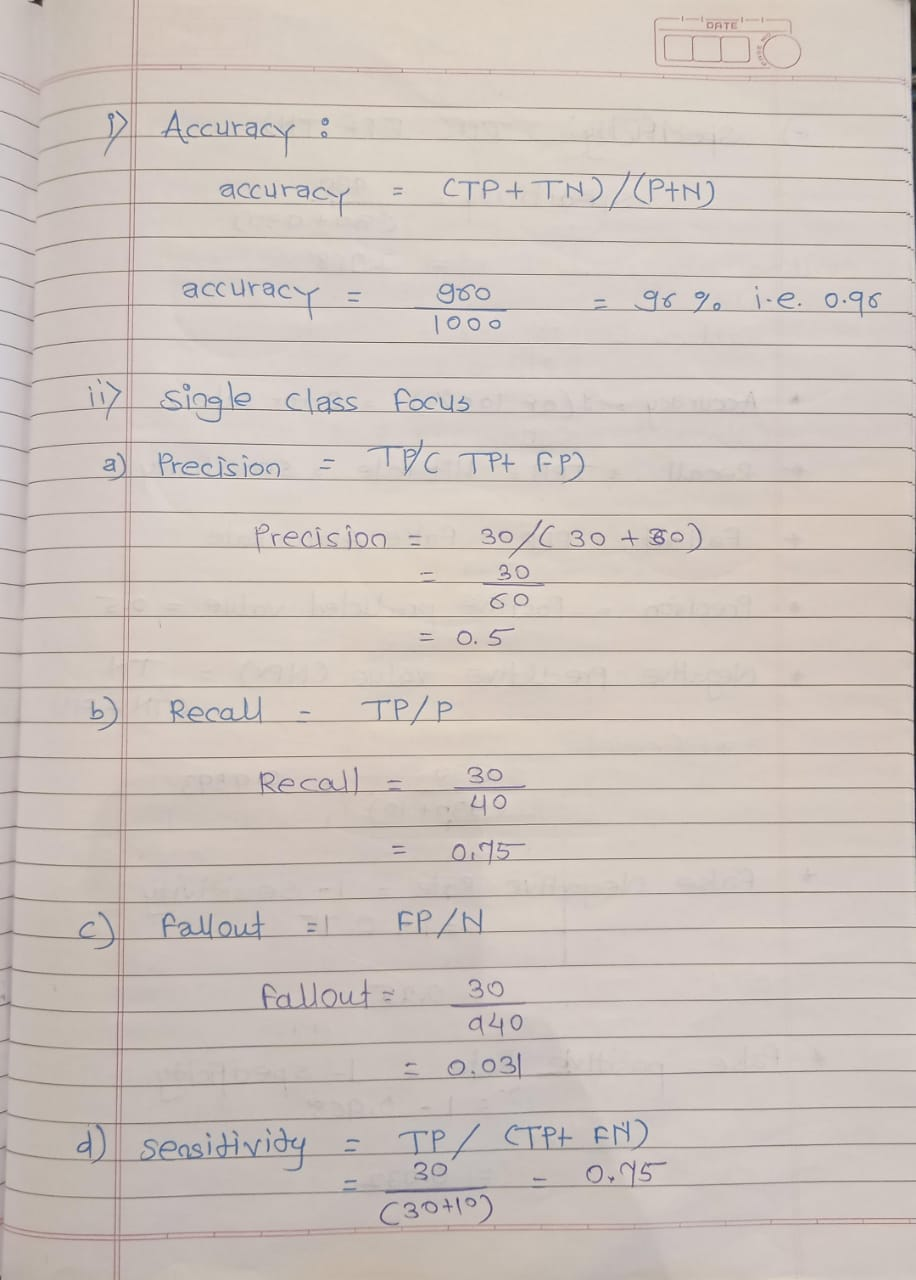 DATE
i) Accuracy :
accuracy = (TP + TN) / (P+N)
accuracy = 960 / 1000 = 96 % i.e. 0.96
ii) Single class focus
a) Precision = TP/( TP+ FP)
Precision = 30 / ( 30 + 30 )
= 30 / 60
= 0.5
b) Recall = TP/P
Recall = 30 / 40
= 0.75
c) fallout = FP/N
fallout = 30 / 940
= 0.031
d) sensitivity = TP / (TP+ FN)
= 30 / (30+10) = 0.75